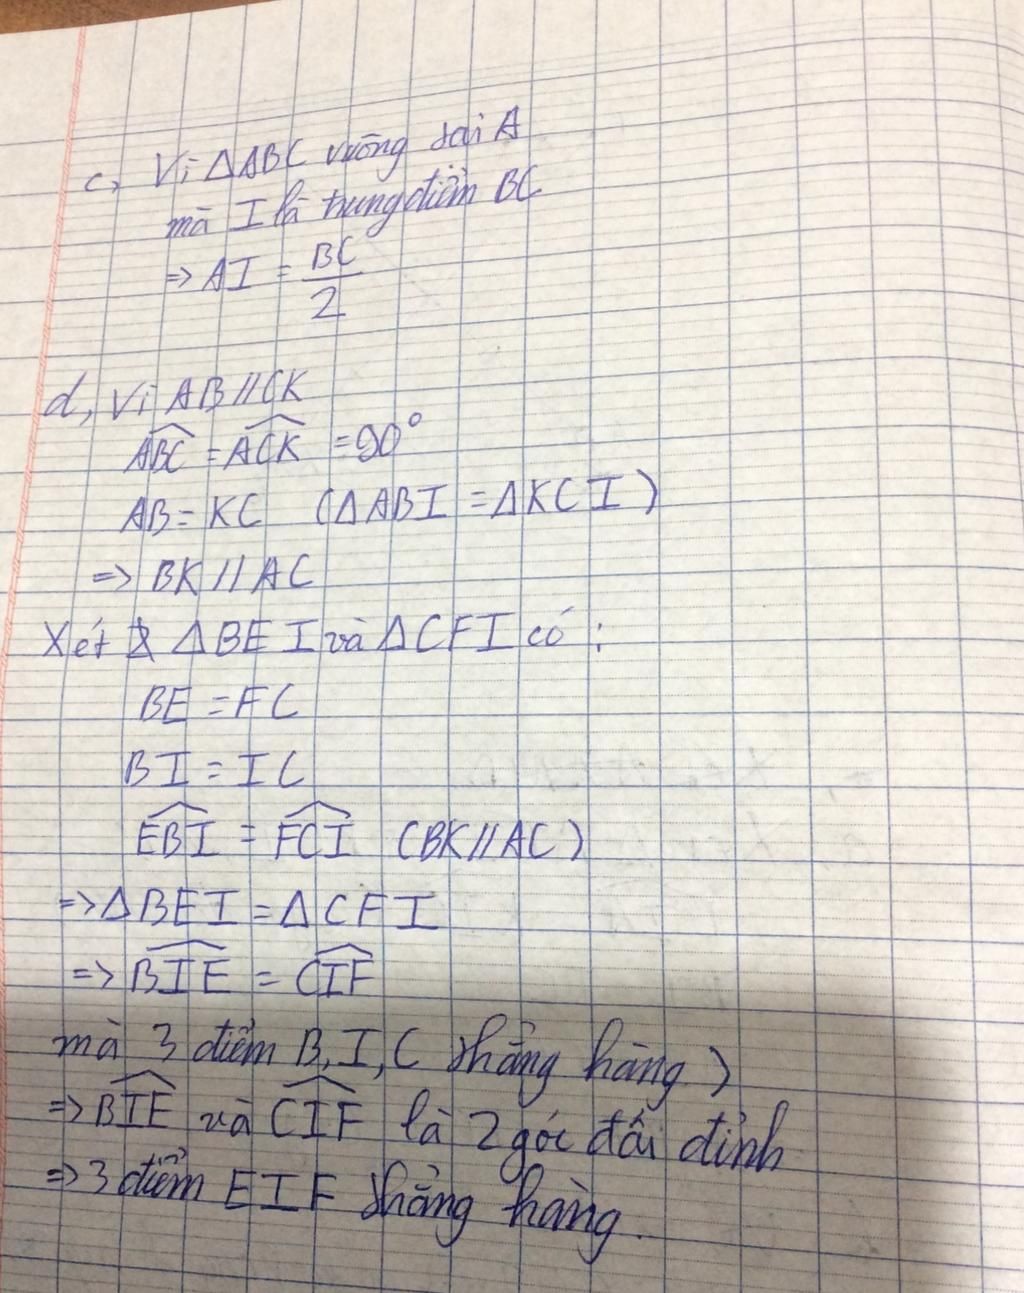 c, Vì ΔABC vuông tại A
mà I là trung điểm BC
=> AI = BC/2
d, Vì AB//CK
\widehat{ABC} = \widehat{ACK} = 90°
AB = KC (ΔABI = ΔKCI)
=> BK // AC
Xét 2 ΔBEI và ΔCFI có:
BE = FC
BI = IC
\widehat{EBI} = \widehat{FCI} (BK//AC)
=> ΔBEI = ΔCFI
=> \widehat{BIE} = \widehat{CIF}
mà 3 điểm B, I, C thẳng hàng )
=> \widehat{BIE} và \widehat{CIF} là 2 góc đối đỉnh
=> 3 điểm EIF thẳng hàng.